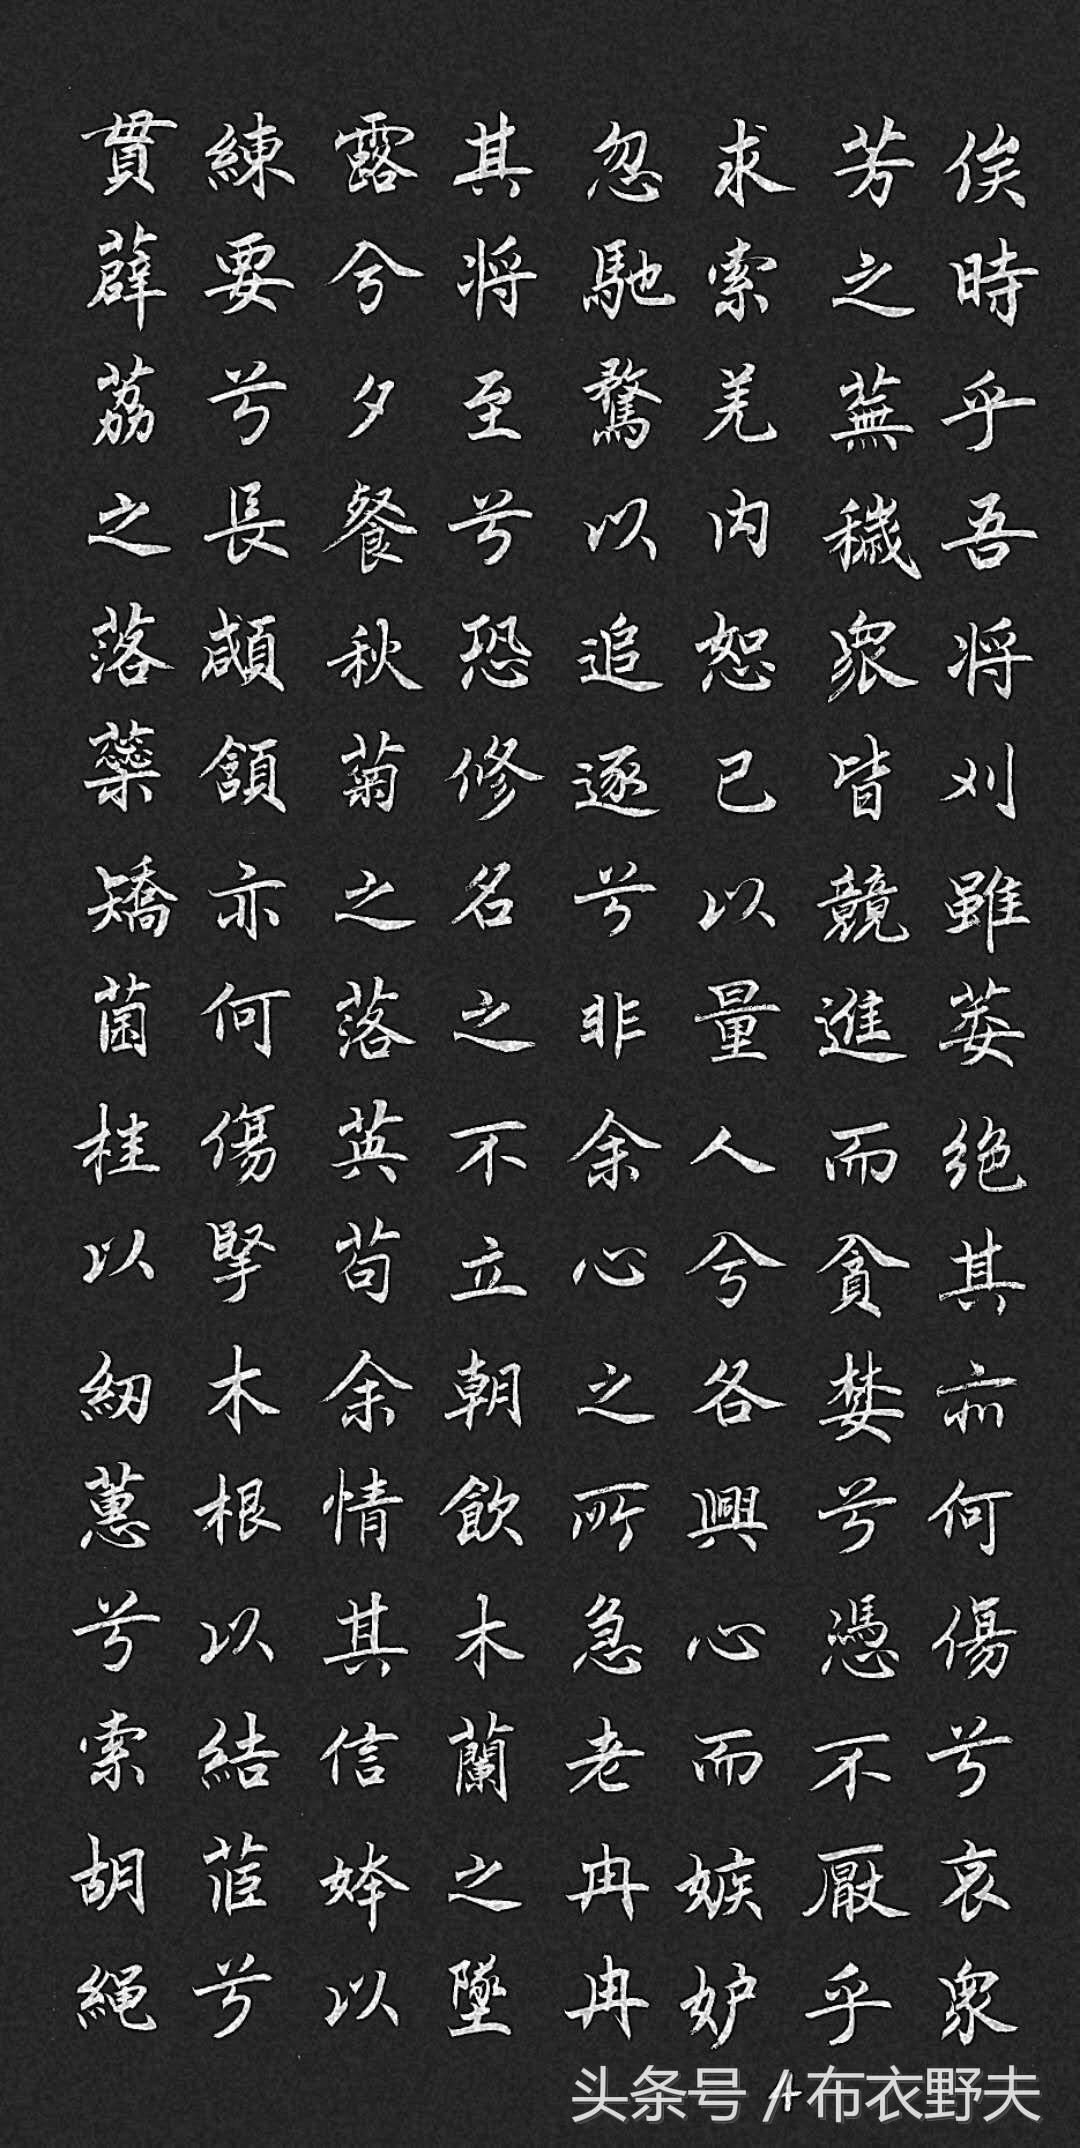 俟時乎吾將刈雖萎絶其亦何傷兮哀衆
芳之蕪穢衆皆競進而貪婪兮憑不厭乎
求索羌内恕己以量人兮各興心而嫉妒
忽馳騖以追逐兮非余心之所急老冉冉
其将至兮恐修名之不立朝飲木蘭之墜
露兮夕餐秋菊之落英苟余情其信姱以
練要兮長顑頷亦何傷擥木根以結茝兮
貫薜荔之落蘂矯菌桂以紉蕙兮索胡繩
头条号 / 布衣野夫